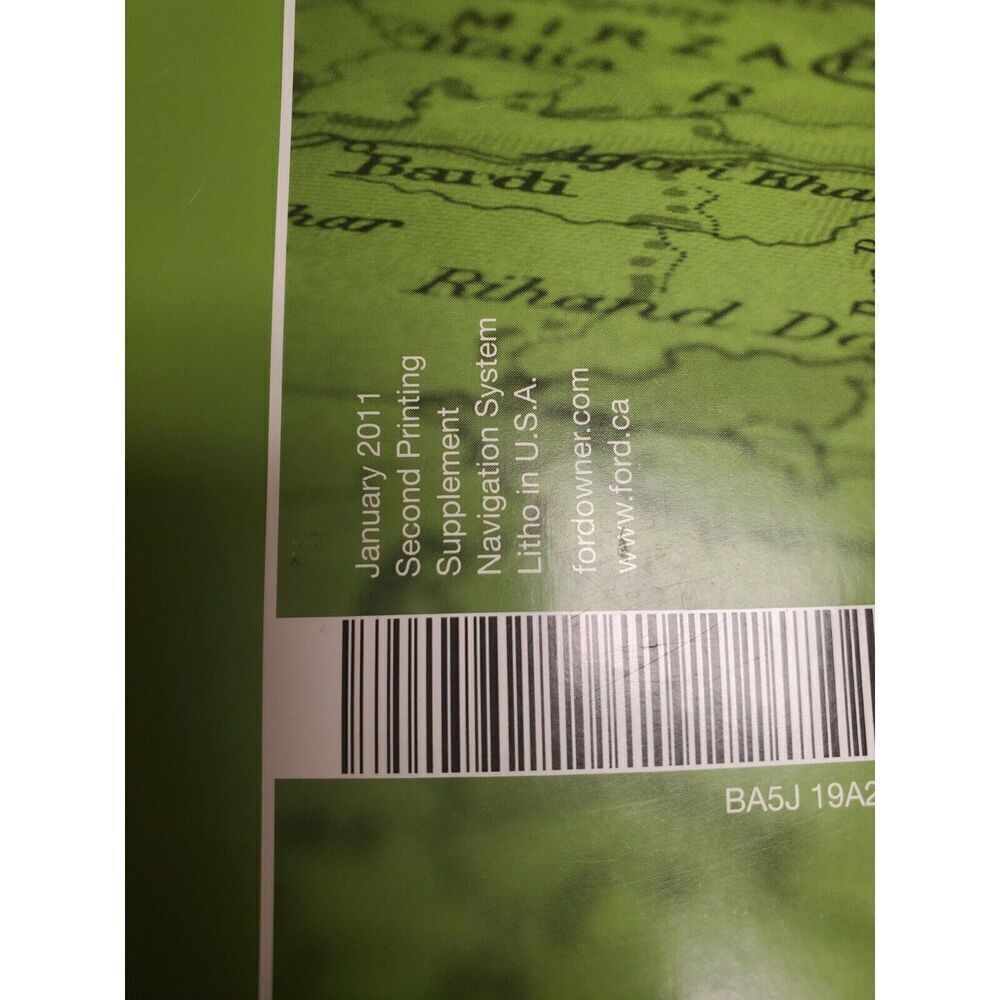 MIRZA
R
Agori Kha
Bardi
har
Rihand D
January 2011
Second Printing
Supplement
Navigation System
Litho in U.S.A.
fordowner.com
www.ford.ca
BA5J 19A2